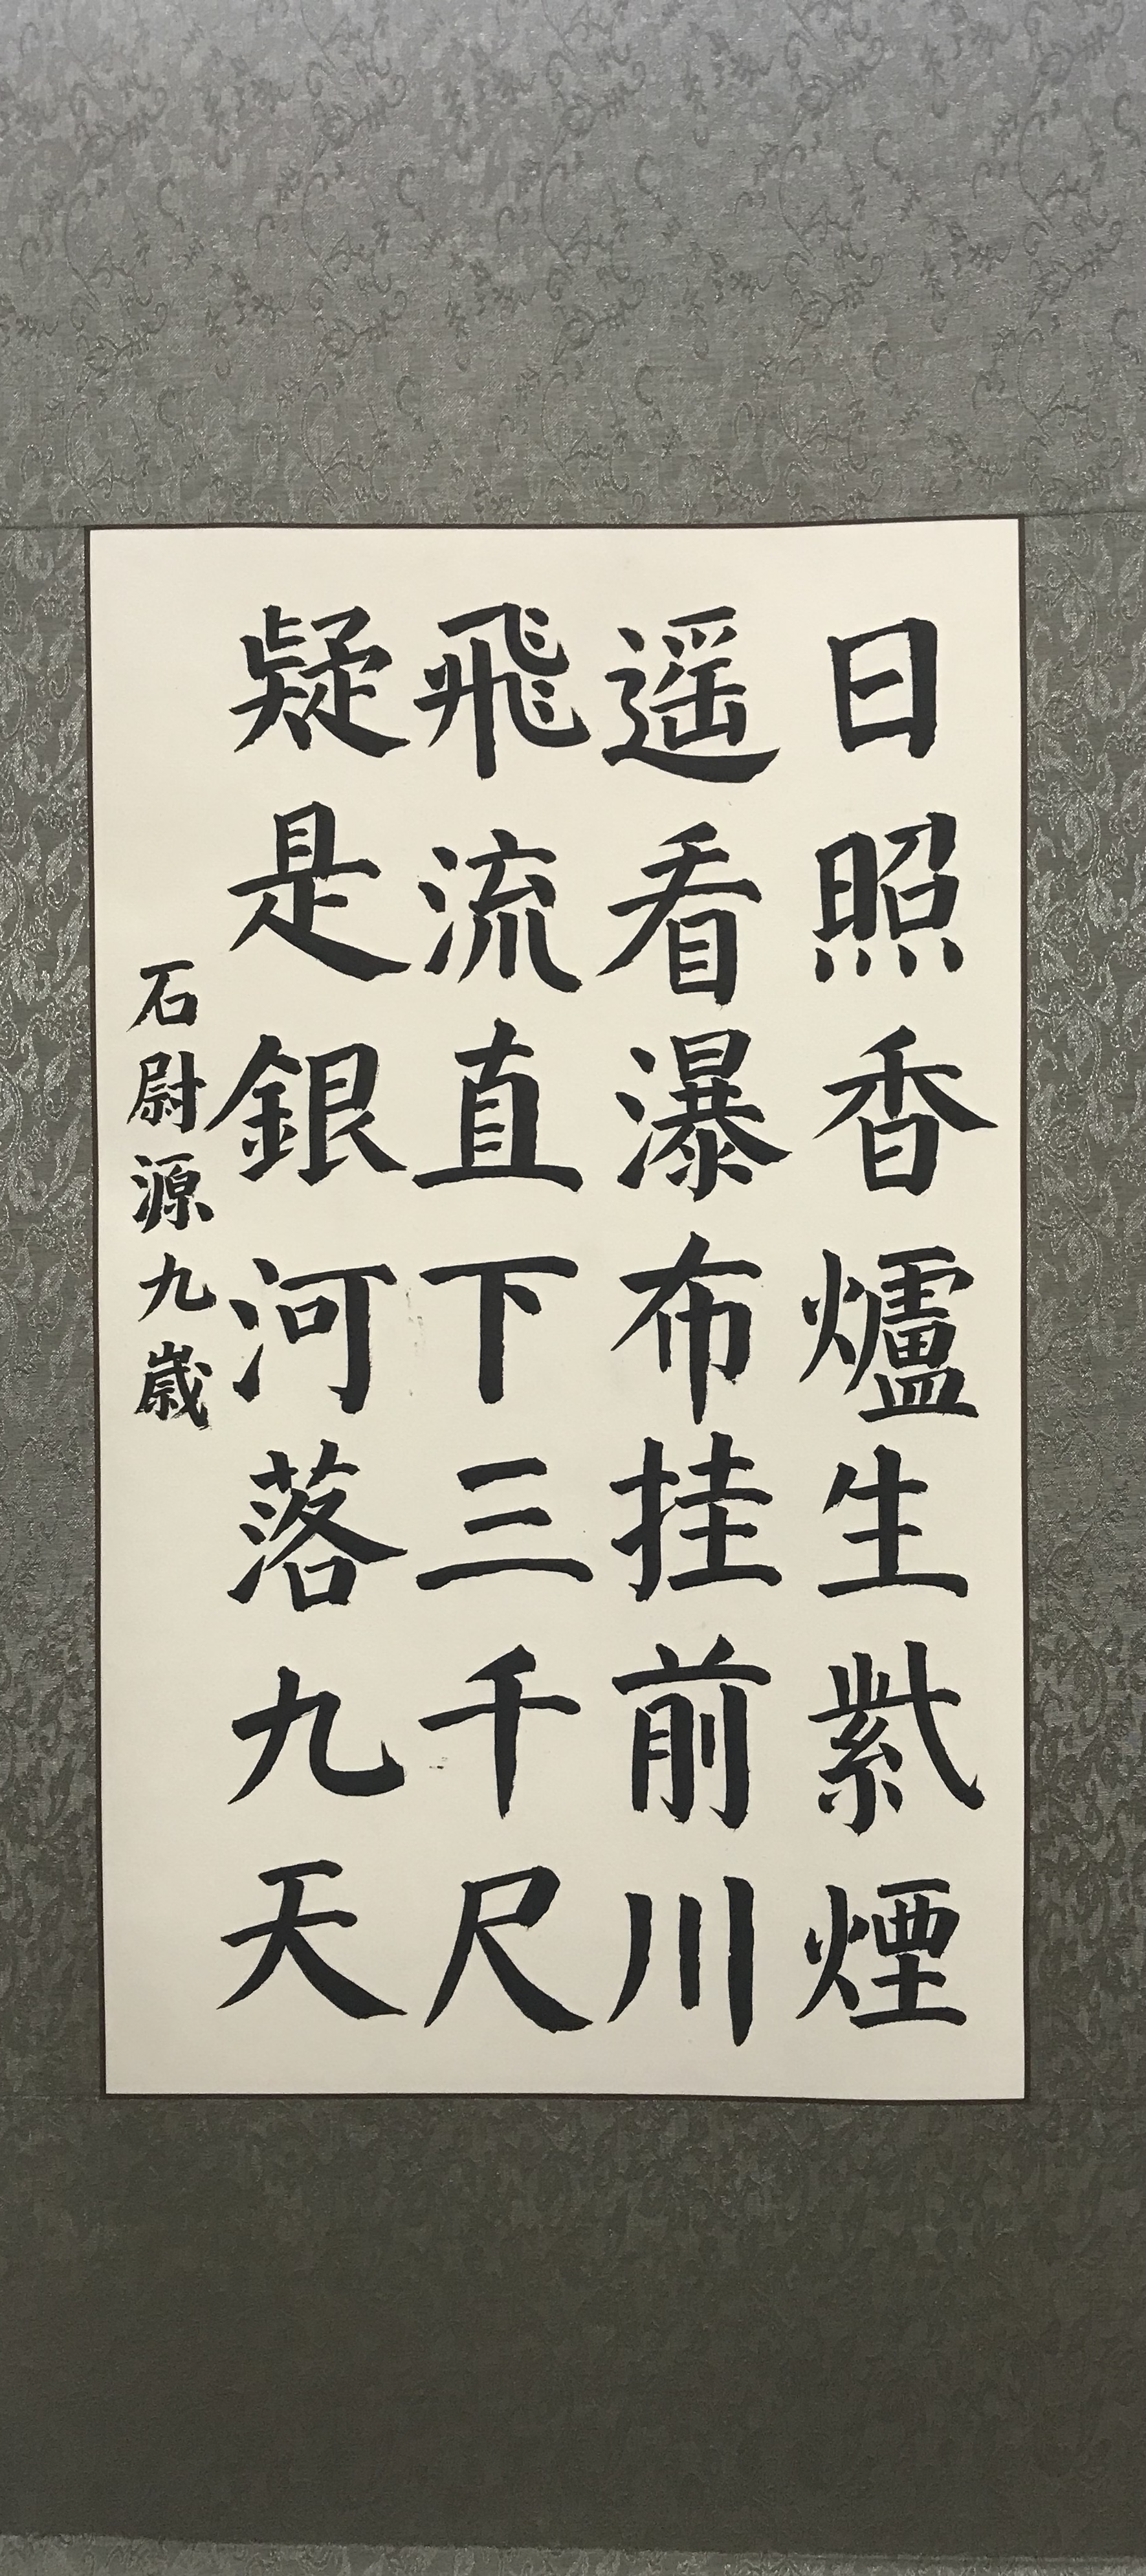 日照香爐生紫煙
遥看瀑布挂前川
飛流直下三千尺
疑是銀河落九天
石尉源九歲